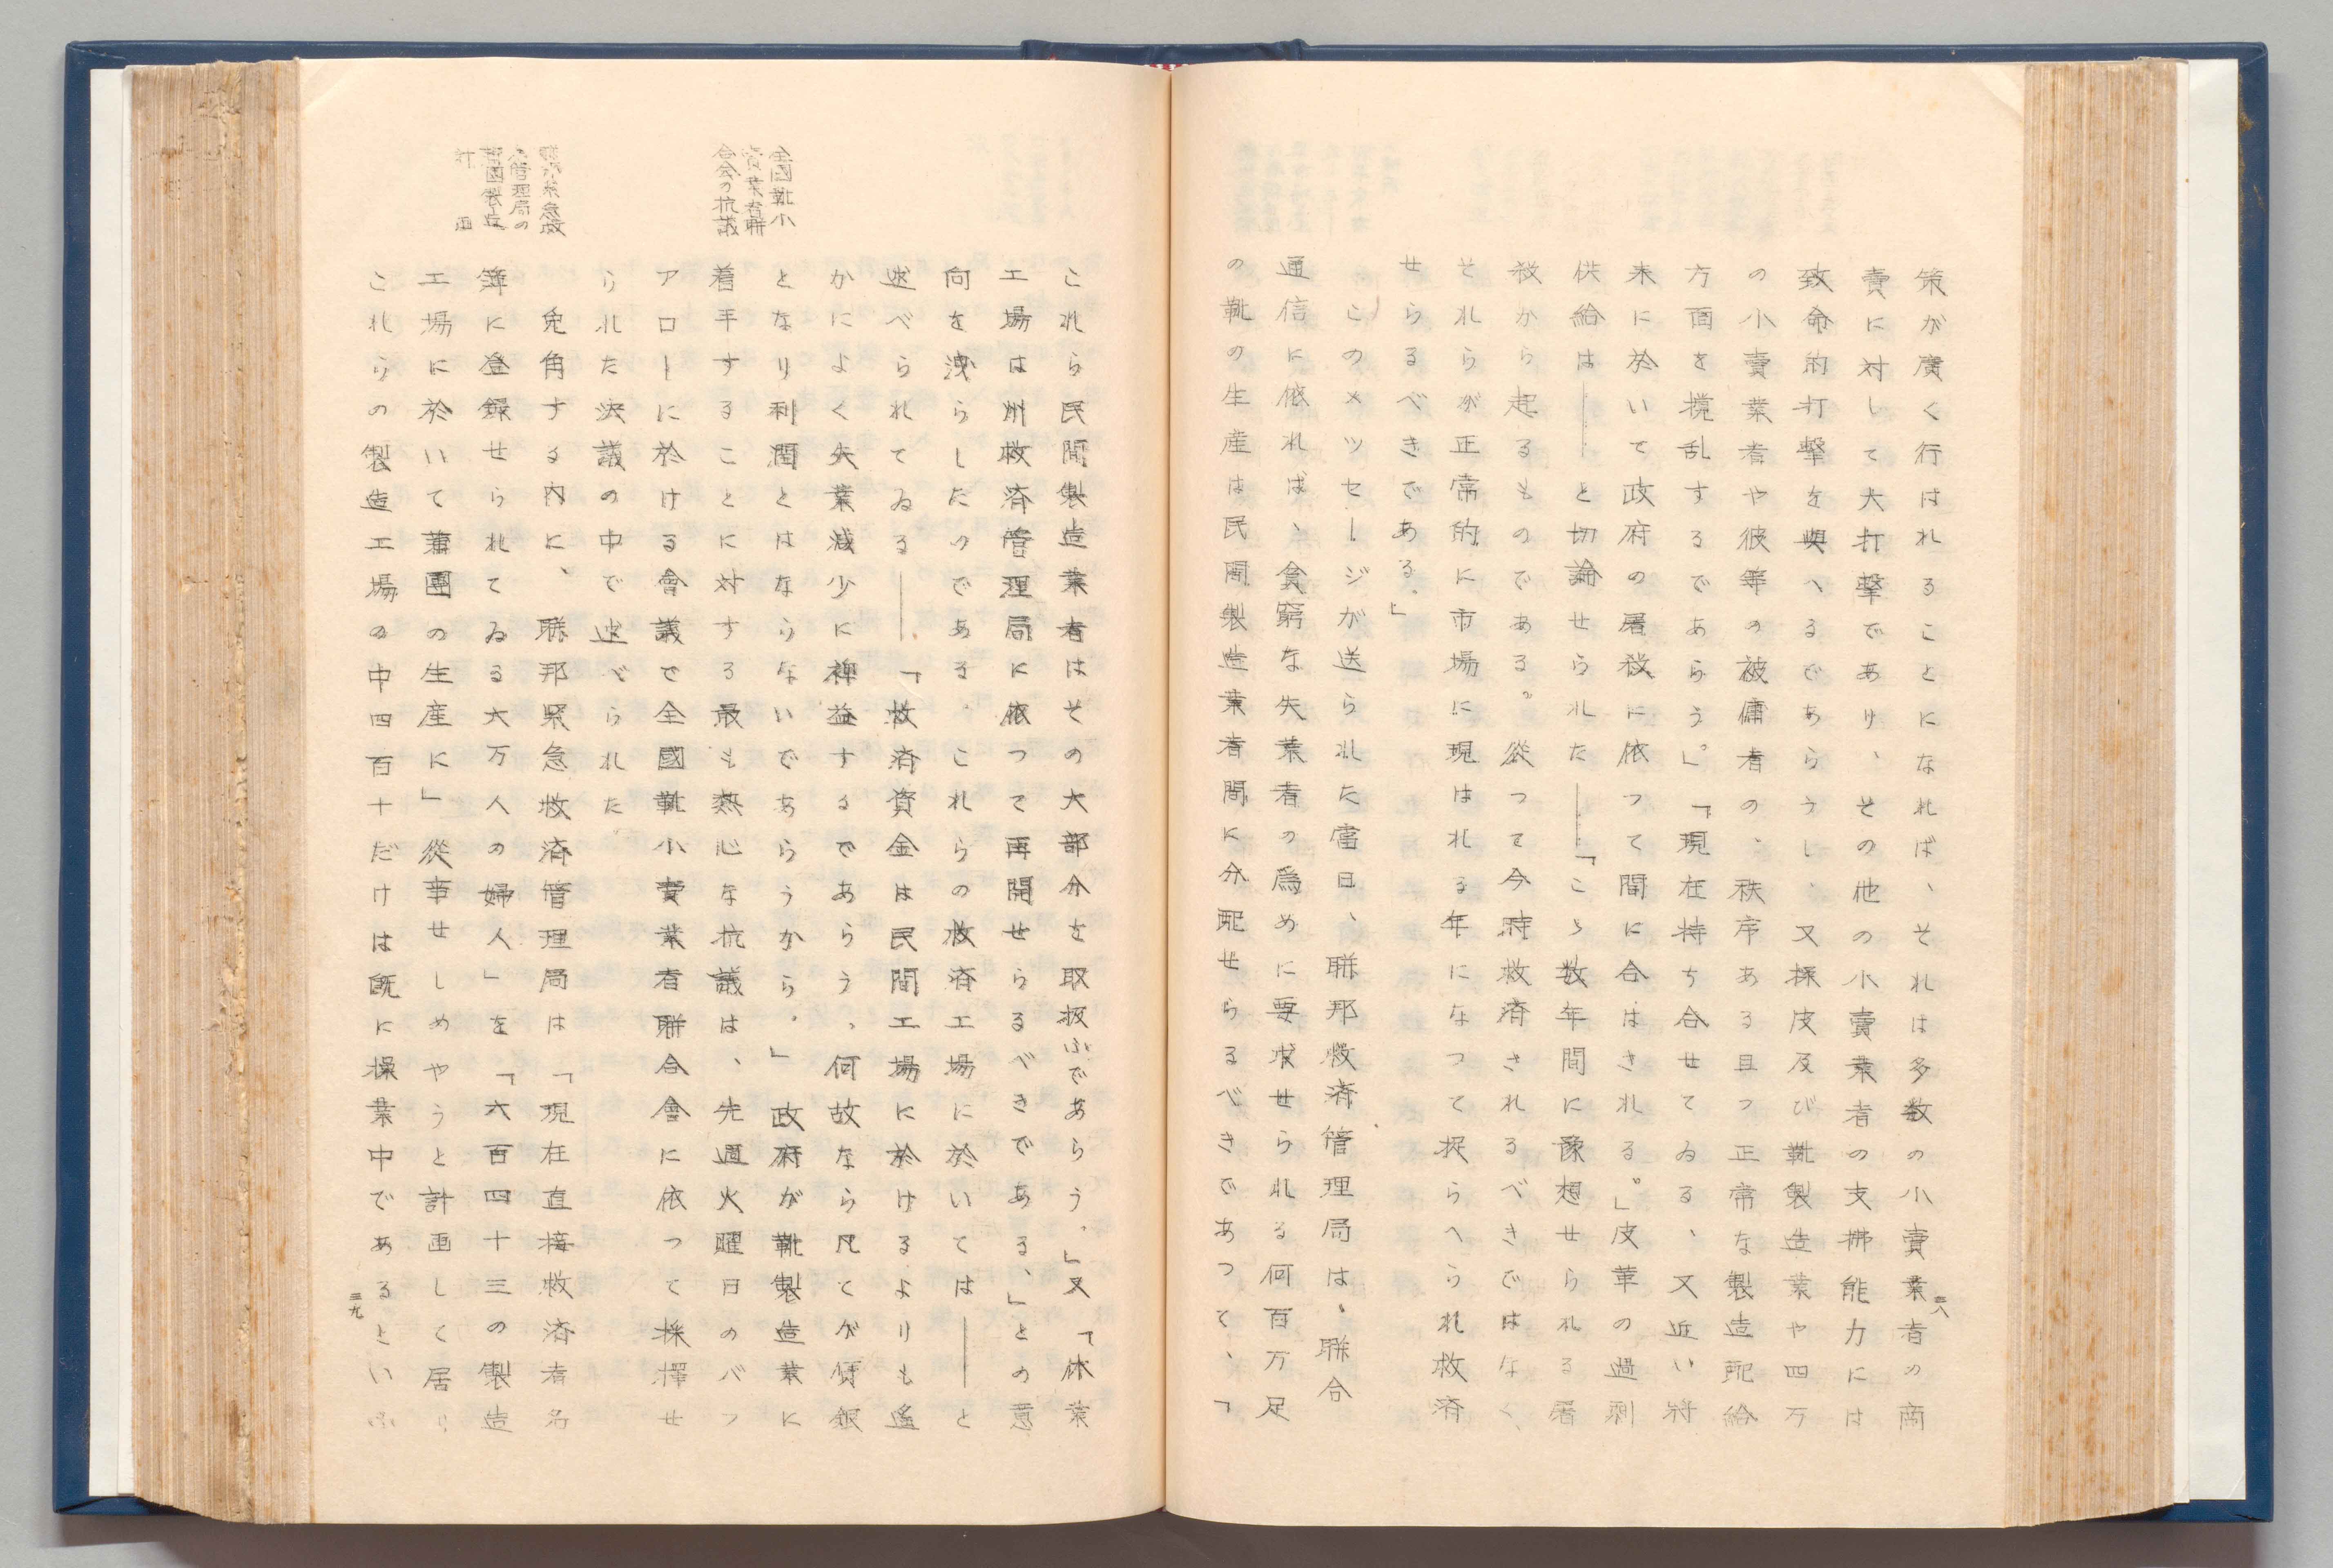 策が廣く行はれることになれば、それは多数の小賣業者の商
賣に対して大打撃であり、その他の小賣業者の支拂能力には
致命的打撃を與へるであらうし、又採皮及び靴製造業や四万
の小賣業者や彼等の被傭者の、秩序ある且つ正常な製造配給
方面を攪乱するであらう。」「現在持ち合せてゐる、又近い將
来に於いて政府の屠殺に依って間に合はされる。」皮革の過剰
供給は――と切論せられた――「こゝ数年間に豫想せられる屠
殺から起るものである。從って今時救済されるべきではなく、
それらが正常的に市場に現はれる年になって捉らへられ救済
せらるべきである。」
このメッセージが送られた當日、聯邦救済管理局は、聯合
通信に依れば、貧窮な失業者の為めに要求せられる何百万足
の靴の生産は民間製造業者間に分配せらるべきであつて、「
三八
これら民間製造業者はその大部分を取扱ふであらう。」又「休業
工場は州救済管理局に依つて再開せらるべきである、」との意
向を洩らしたのである。これらの救済工場に於いては――と
述べられてゐる――「救済資金は民間工場に於けるよりも遙
かによく失業減少に裨益するであらう。何故なら凡てが賃銀
となり利潤とはならないであらうから。」政府が靴製造業に
着手することに対する最も熱心な抗議は、先週火曜日のバッ
アローに於ける會議で全國靴小賣業者聯合會に依つて採擇せ
られた決議の中で述べられた。
兎角する内に、聯邦緊急救済管理局は「現在直接救済者名
簿に登録せられてゐる大万人の婦人」を「六百四十三の製造
工場に於いて蒲團の生産に」從事せしめやうと計画して居り
これらの製造工場の中四百十だけは既に操業中であるといふ
三九
全國靴小
賣業者聯
合会の抗議
聯邦緊急救
済管理局の
蒲團製造
計画